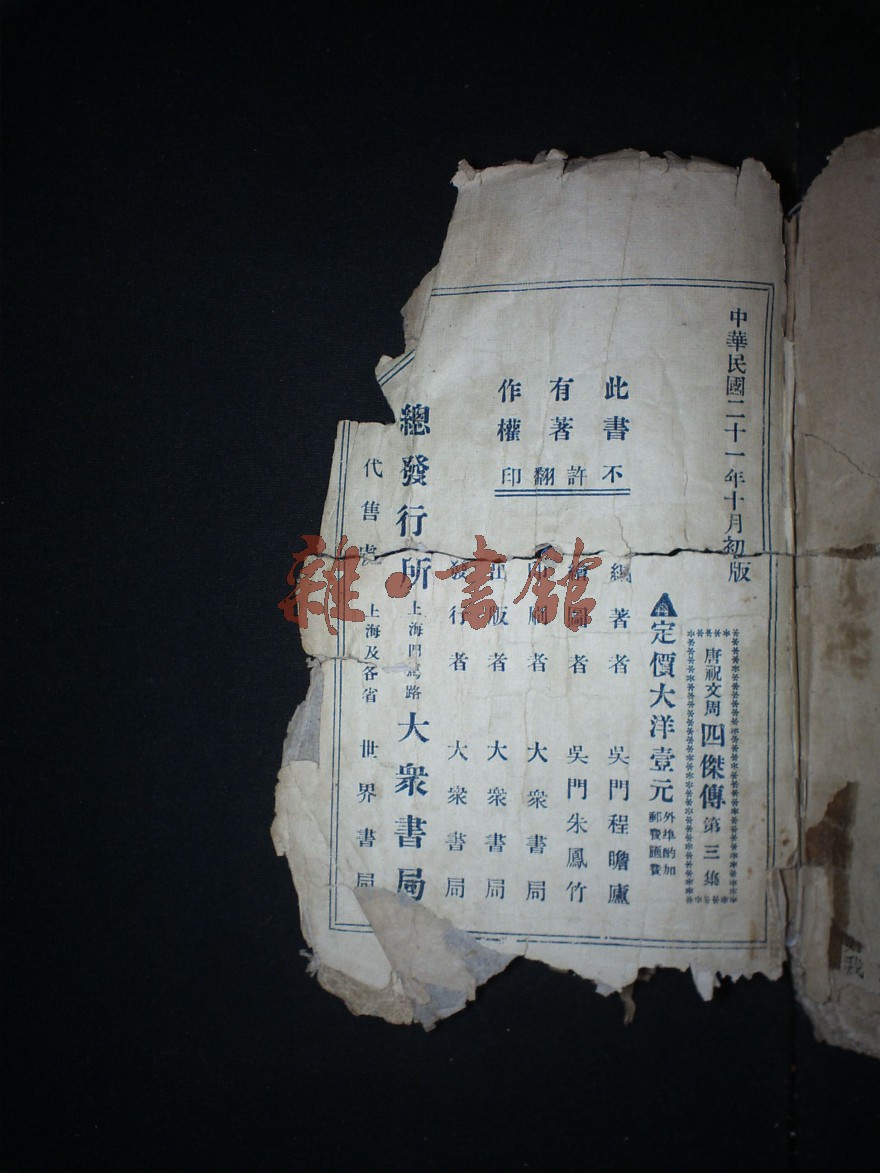 中華民國二十一年十月初版
唐祝文周四傑傳第三集
定價大洋壹元
外埠酌加
郵費匯費
此書
有著
作權
不許翻印
編著者 吳門程瞻廬
繪圖者 吳門朱鳳竹
印刷者 大衆書局
出版者 大衆書局
發行者 大衆書局
總發行所 上海四馬路 大衆書局
代售處 上海及各省 世界書局
雜·書館